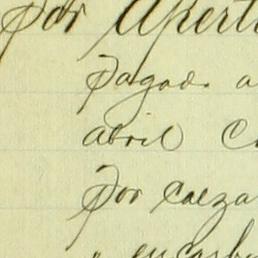 Por Apert
Pagado a
abril C
Por calza
" en carb